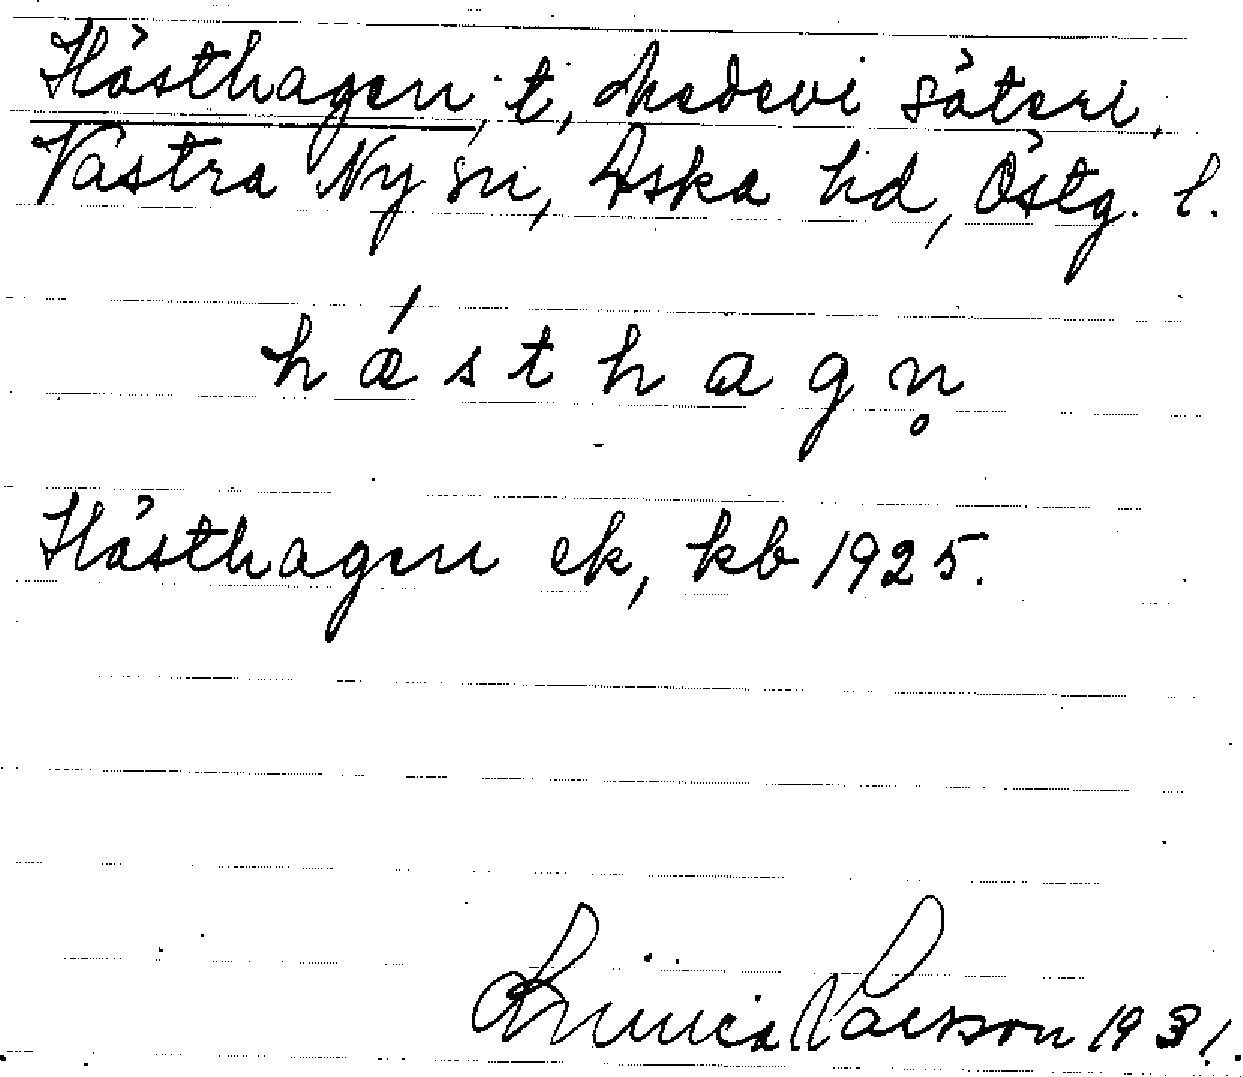 Hästhagen, t, Medevi säteri,
Västra Ny sn, Aska hd, Östg. l.
h ǽ s t h a g n̥
Hästhagen ek, kb 1925.
Larsson 1931.